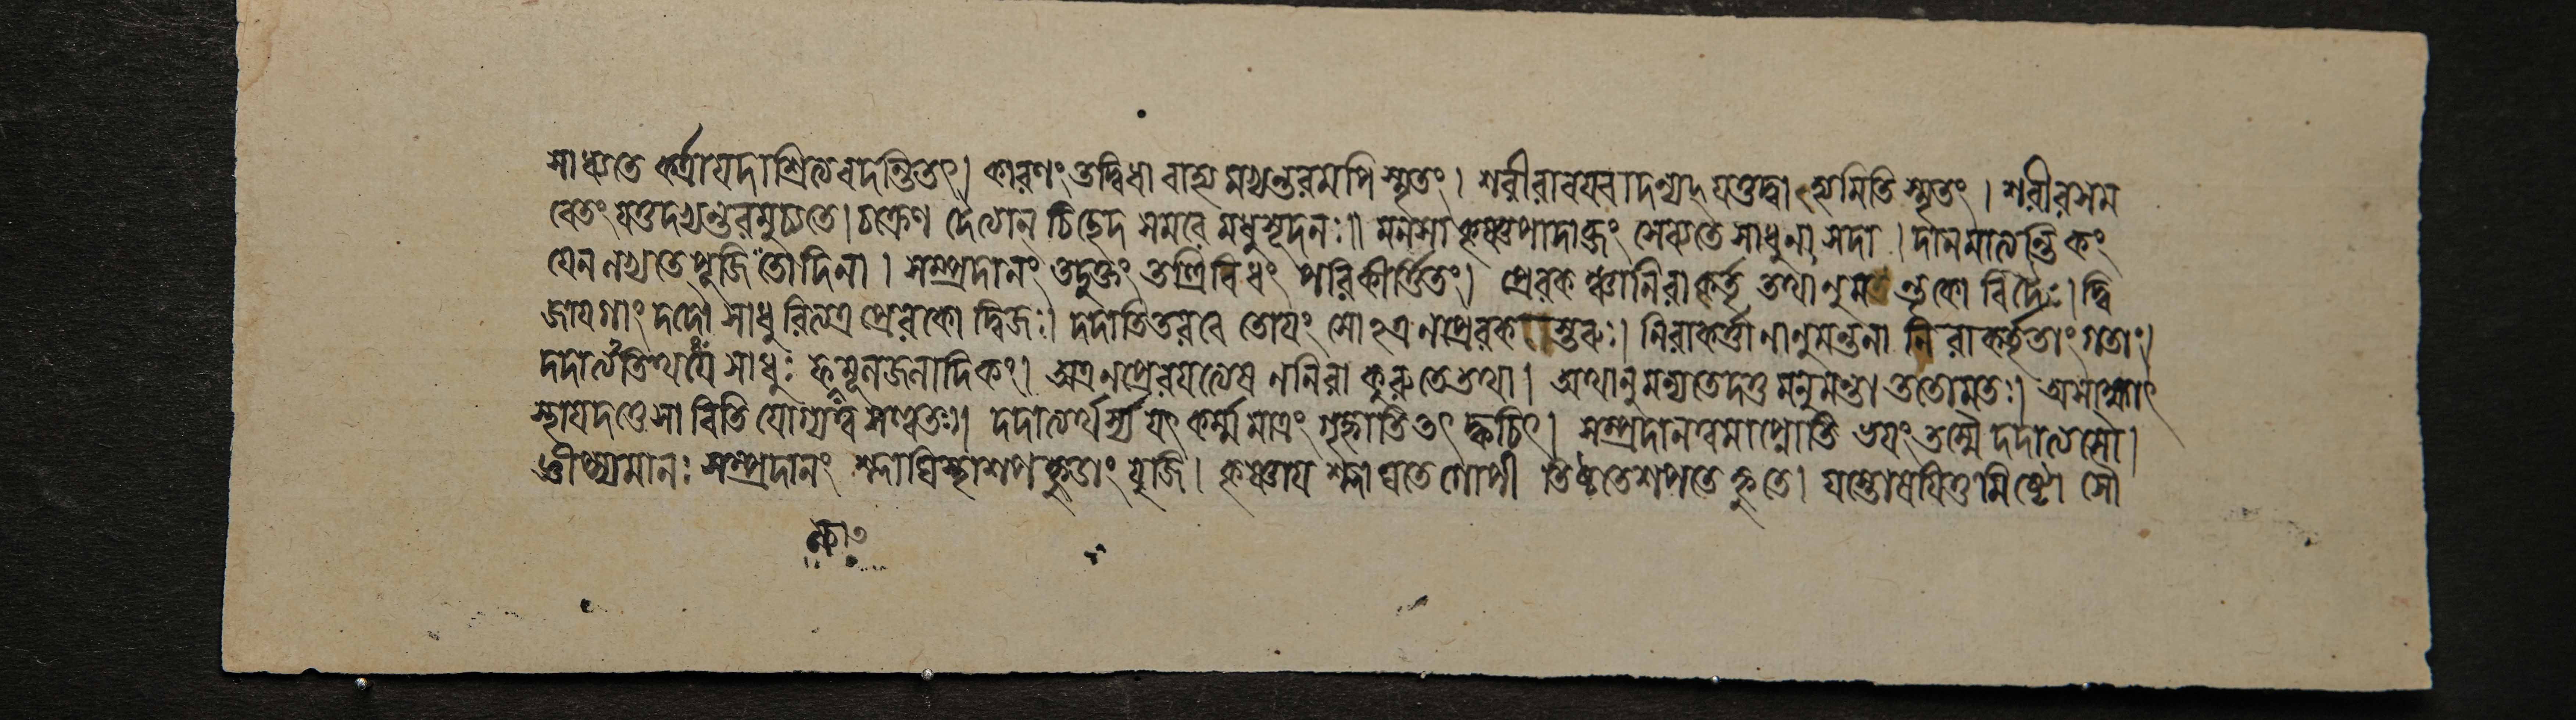 সাধ্যতে কর্ত্রা যদাশ্রিত্য বদন্তি তৎ। কারণং তদ্দ্বিধা বাহ্যমভ্যন্তরমপি স্মৃতং। শরীরাবযবাদন্যদ্ যত্তদ্বাহ্যমিতি স্মৃতং। শরীরসম
বেতং যত্তদভ্যন্তরমুচ্যতে। চক্রেণ দৈত্যান চিচ্ছেদ সমরে মধুসূদনঃ॥ মনসা কৃষ্ণপাদাব্জং সেব্যতে সাধুনা সদা। দানমাত্যন্তিকং
যেন লভ্যতে পূজিতোদিনা। সম্প্রদানং তদুক্তং তত্ত্রিবিধং পরিকীর্ত্তিতং। প্রেরকশ্চানিরাকর্ত্তৃ তথানুমন্তৃকো দ্বিজৈঃ। দ্বি
জায গাং দদৌ সাধুরিত্যত্র প্রেরকো দ্বিজঃ। দদাতি তরবে তোযং সোঽত্র ন প্রেরকস্তরুঃ। নিরাকর্ত্তা নানুমন্তা না নিরাকর্ত্তৃতাং গতাং।
দদাত্যতিথযে সাধুঃ ফলমূলজলাদিকং। অত্র ন প্রেরযত্যেষ ন নিরাকুরুতে তথা। অথানুমন্যতে দত্তমনুমন্তা ততো মতঃ। অসাক্ষাৎ
স্থাযদণ্ডেসাবিতি যোগ্যত্ব সম্বতঃ। দদাত্যর্থস্য যৎ কর্ম্মমাত্রং গৃহ্নাতি তৎ ক্কচিৎ। সম্প্রদানত্বমাপ্নোতি ভযং তস্মৈ দদাত্যসৌ।
জ্ঞীপ্স্যমানঃ সম্প্রদানং শ্লাঘিস্থাশপহ্নুঙাং যুজি। কৃষ্ণায শ্লাঘতে গোপী তিষ্ঠতে শপতে হ্নুতে। যস্তোষযিতুমিষ্টো সৌ